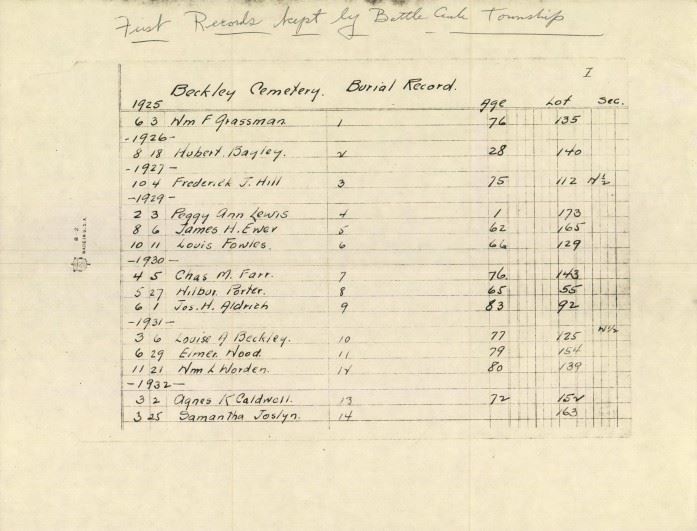 First Records kept by Battle Creek Township
I
Beckley Cemetery. Burial Record.
1925 Age Lot Sec.
6 3 Wm F Grassman 1 76 135
-1926-
8 18 Hubert Bagley. 2 28 140
-1927-
10 4 Frederick J. Hill 3 75 112 N½
-1929-
2 3 Peggy Ann Lewis 4 1 173
8 6 James H. Ewer 5 62 165
10 11 Louis Fowles. 6 66 129
-1930-
4 5 Chas M. Farr. 7 76 143
5 27 Wilbur Porter. 8 65 55
6 1 Jos. H. Aldrich 9 83 92
-1931-
3 6 Louise A Beckley. 10 77 125 W½
6 29 Elmer Wood. 11 79 154
11 21 Wm L Worden. 12 80 139
-1932-
3 2 Agnes K Caldwell. 13 72 152
3 25 Samantha Joslyn. 14 163